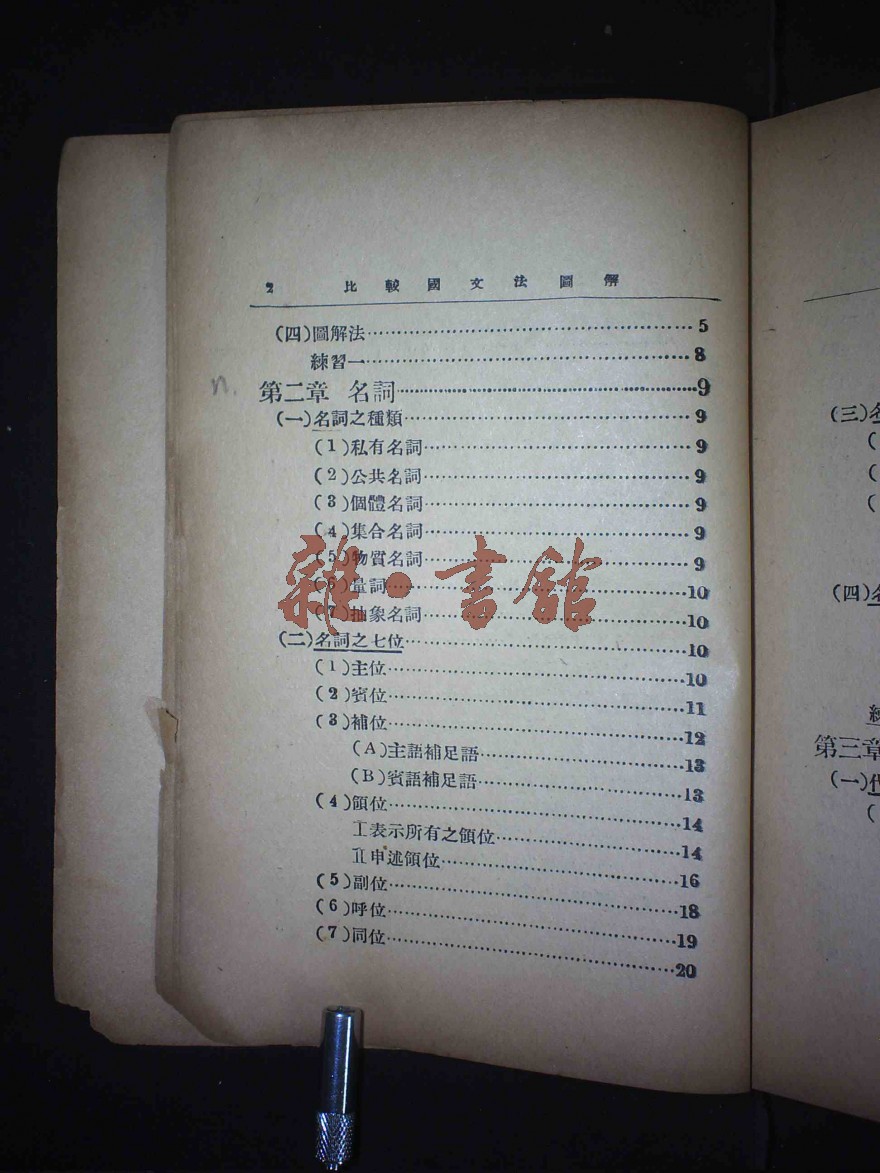 2 比較國文法圖解
(四)圖解法……5
練習一……8
n.
第二章 名詞……9
(一)名詞之種類……9
(1)私有名詞……9
(2)公共名詞……9
(3)個體名詞……9
(4)集合名詞……9
(5)物質名詞……9
(6)量詞……10
(7)抽象名詞……10
(二)名詞之七位……10
(1)主位……10
(2)賓位……11
(3)補位……12
(A)主語補足語……13
(B)賓語補足語……13
(4)領位……14
I表示所有之領位……14
II申述領位……16
(5)副位……18
(6)呼位……19
(7)同位……20
雜·書館
(三)
(
(
(
(四)
第三章
(一)代
(